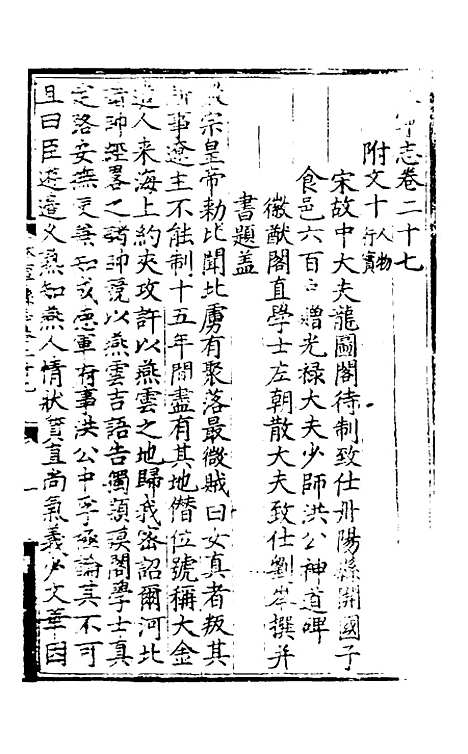 寧志卷二十七
附文十人物行實
宋故中大夫龍圖閣待制致仕丹陽縣開國子
食邑六百戶贈光祿大夫少師洪公神道碑
徽猷閣直學士左朝散大夫致仕劉岑撰并
書題蓋
宗皇帝勅比聞北虜有聚落最微賊曰女真者叛其
事遼主不能制十五年間盡有其地僭位號稱大金
遣人来海上約夾攻許以燕雲之地歸我密詔爾河北
帥經畧之諸帥競以燕雲吉語告獨顯謨閣學士真
定路安撫使兼知成德軍府事洪公中孚極論其不可
且曰臣遊邊久熟知燕人情狀質直尚氣義少文華因